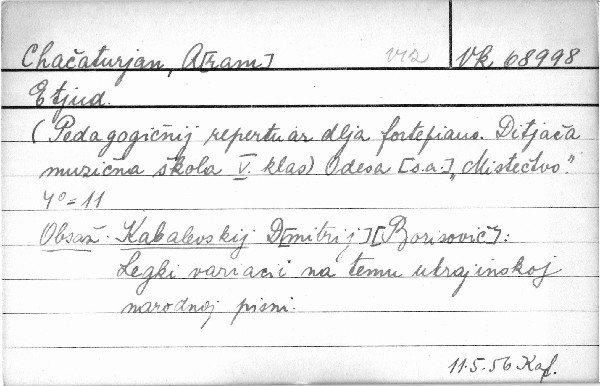 Chačaturjan, A[ram] viz Vk 68998
Etjud.
(Pedagogičnij repertuar dlja fortepiano. Ditjača
muzična škola V. klas) Odesa [s.a.] „Mistectvo".
4° = 11
Obsaž. Kabalevskij D[mitrij] [Borisovič]:
Legki variacii na temu ukrajinskoj
narodnoj pisni.
11.5.56 Kaf.